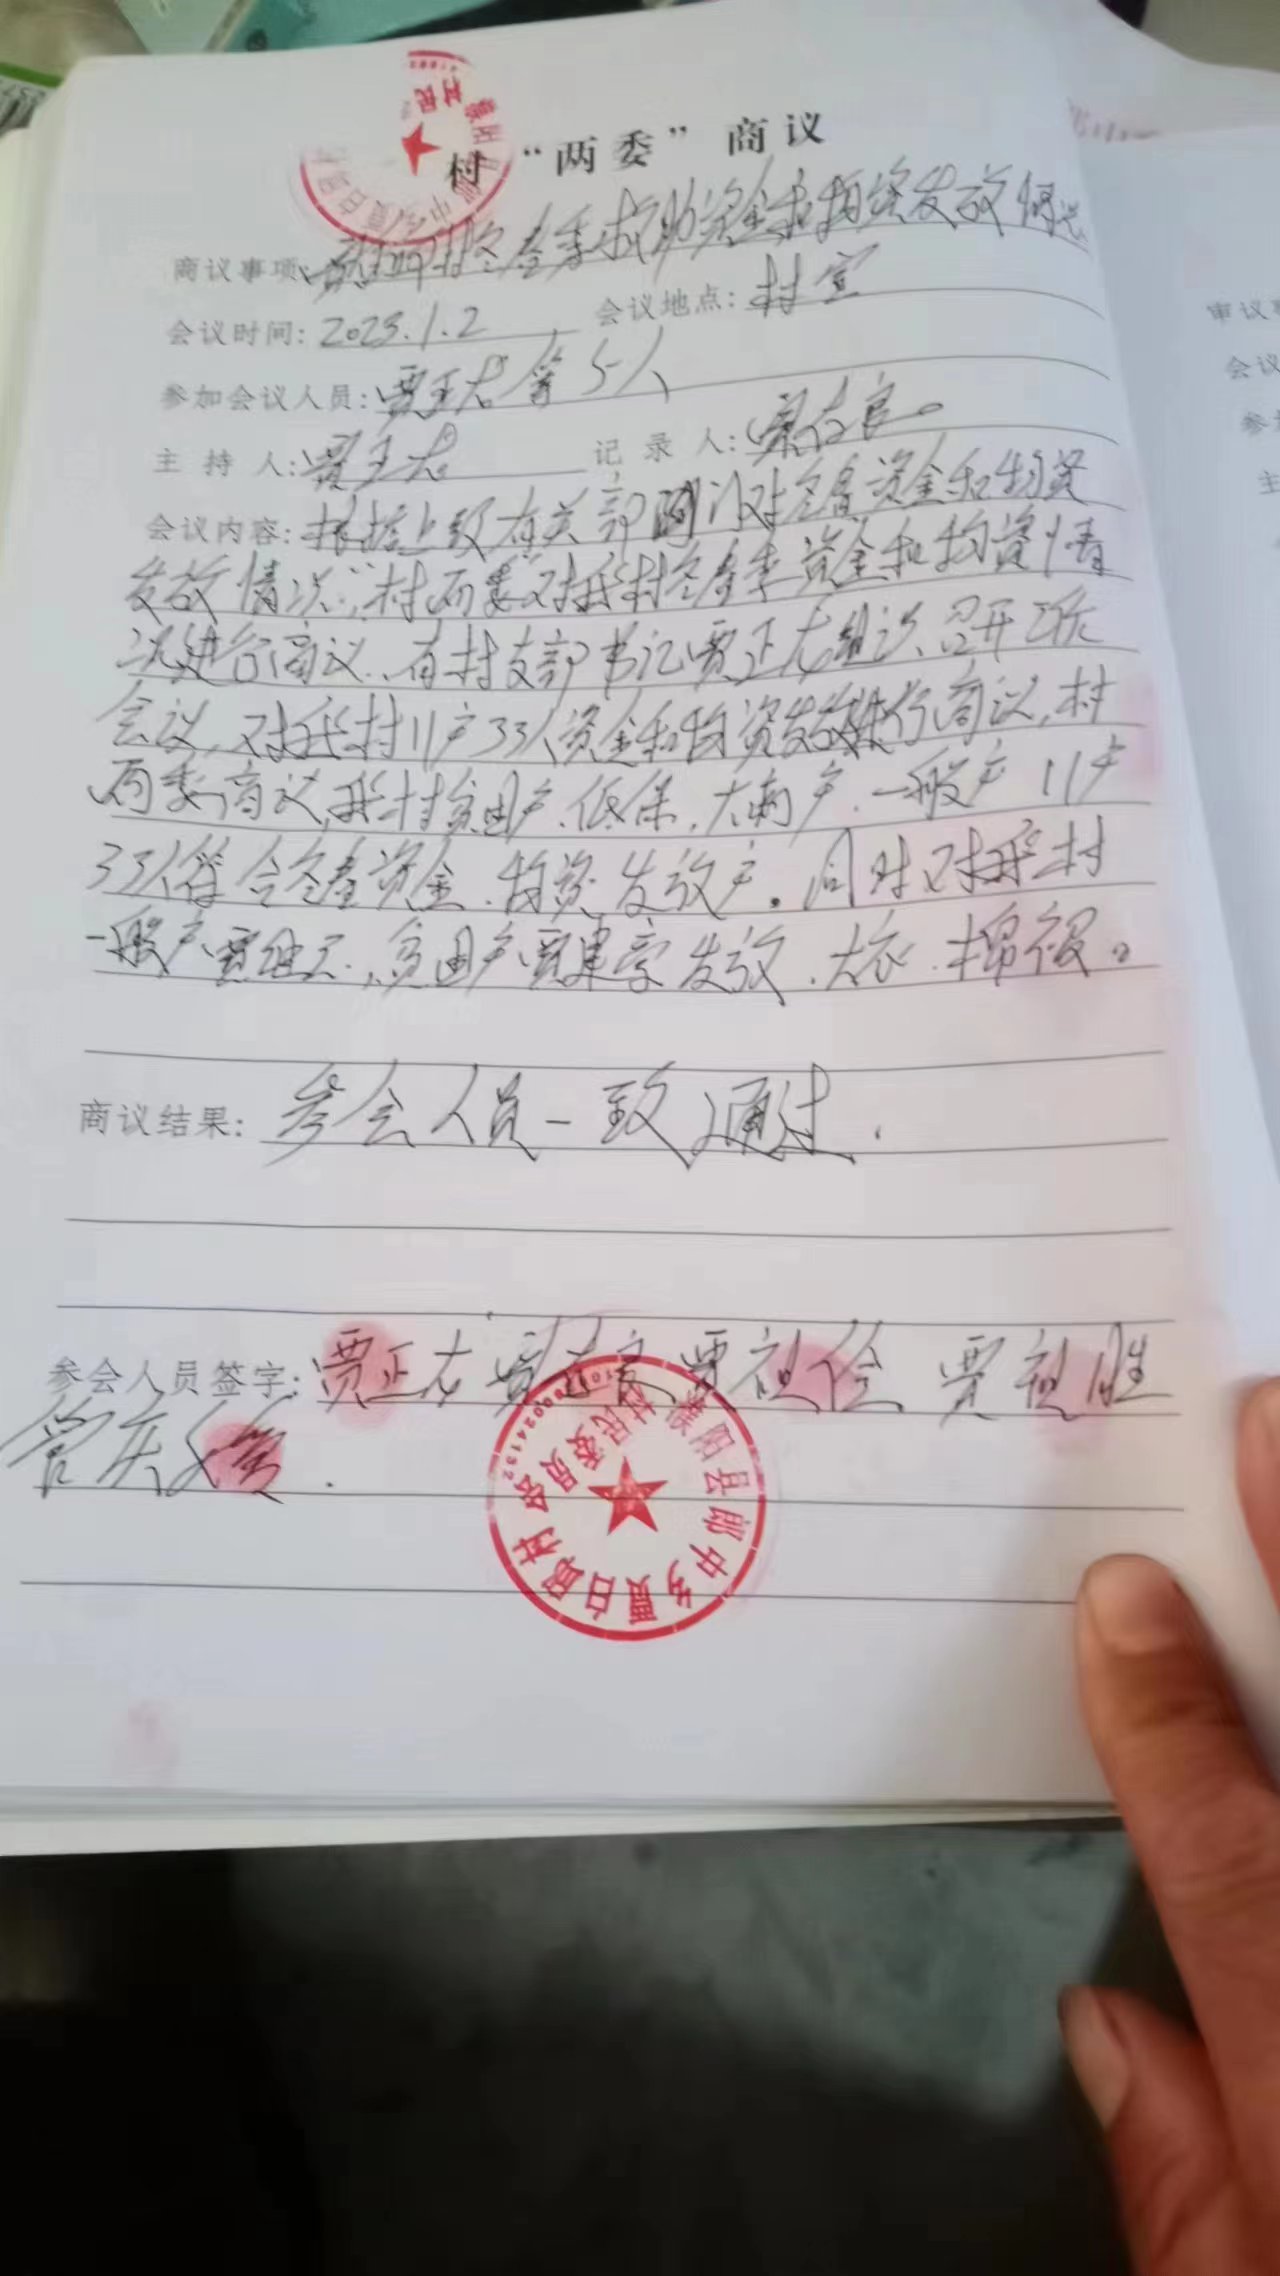 村“两委”商议
商议事项: 冬春季救助资金和物资发放情况
会议时间: 2023.1.2 会议地点: 村室
参加会议人员: 贾正龙等5人
主持人: 贾正龙 记录人: 贾存良。
会议内容: 根据上级有关部门对冬春资金和物资
发放情况,“村两委”对我村冬春季资金和物资情
况进行商议、有村支部书记贾正龙组织召开
会议,对我村11户33人资金和物资发放进行商议,村
两委商议,我村贫困户、低保、大病户、一般户11户
33人符合冬春资金、物资发放户。同时对我村
一般户贾、贫困户贾建学发放、大衣、棉被。
商议结果: 参会人员一致通过.
参会人员签字: 贾正龙 贾存良 贾 贾胜
管庆.
襄阳县郎中乡贾白 村民委员会
审议
会议
参
主